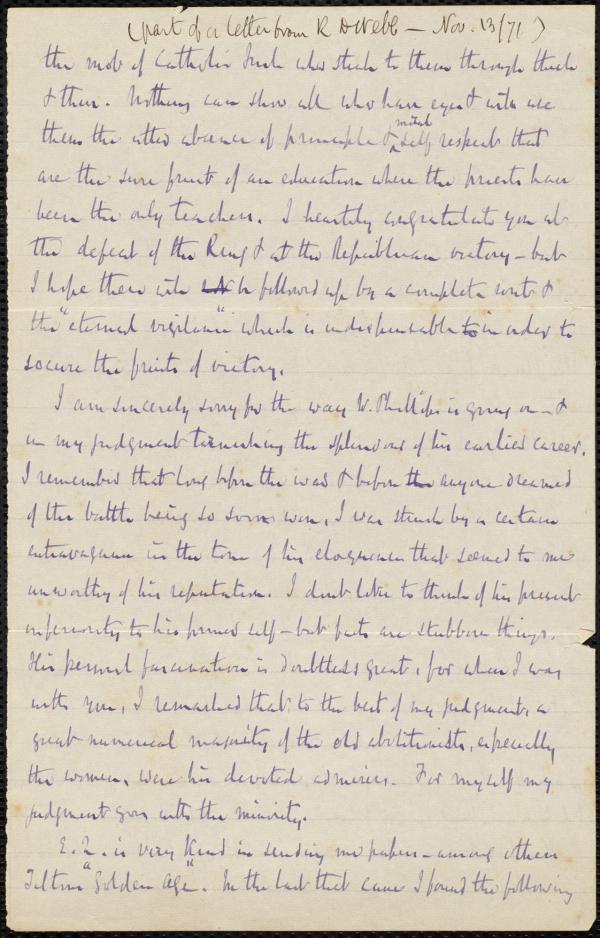 (part of a letter from R D Webb — Nov. 13/71)
the mob of Catholic Irish who stick to them through thick
& thin. Nothing can show all who have eyes & will use
them the utter absence of principle &
mutual
self respect that
are the sure fruit of an education where the priests have
been the only teachers. I heartily congratulate you at
the defeat of the Ring & at the Republican victory – but
I hope these will be followed up by a complete rout &
the "eternal vigilance" which is indispensable to in order to
secure the fruits of victory.
I am sincerely sorry for the way W. Phillips is going on – &
in my judgment tarnishing the splendour of his earlier career.
I remember that long before the war & before the anyone dreamed
of the battle being so soon won, I was struck by a certain
extravagance in the tone of his eloquence that seemed to me
unworthy of his reputation. I dont like to think of his present
inferiority to his former self – but facts are stubborn things.
His personal fascination is doubtless great, for when I was
with you, I remarked that to the best of my judgment, a
great numerical majority of the old abolitionists, especially
the women, were his devoted admirers. For myself my
judgment goes with the minority.
E. 2. is very kind in sending me papers – among others
Tilton "Golden Age". In the last that came I found the following